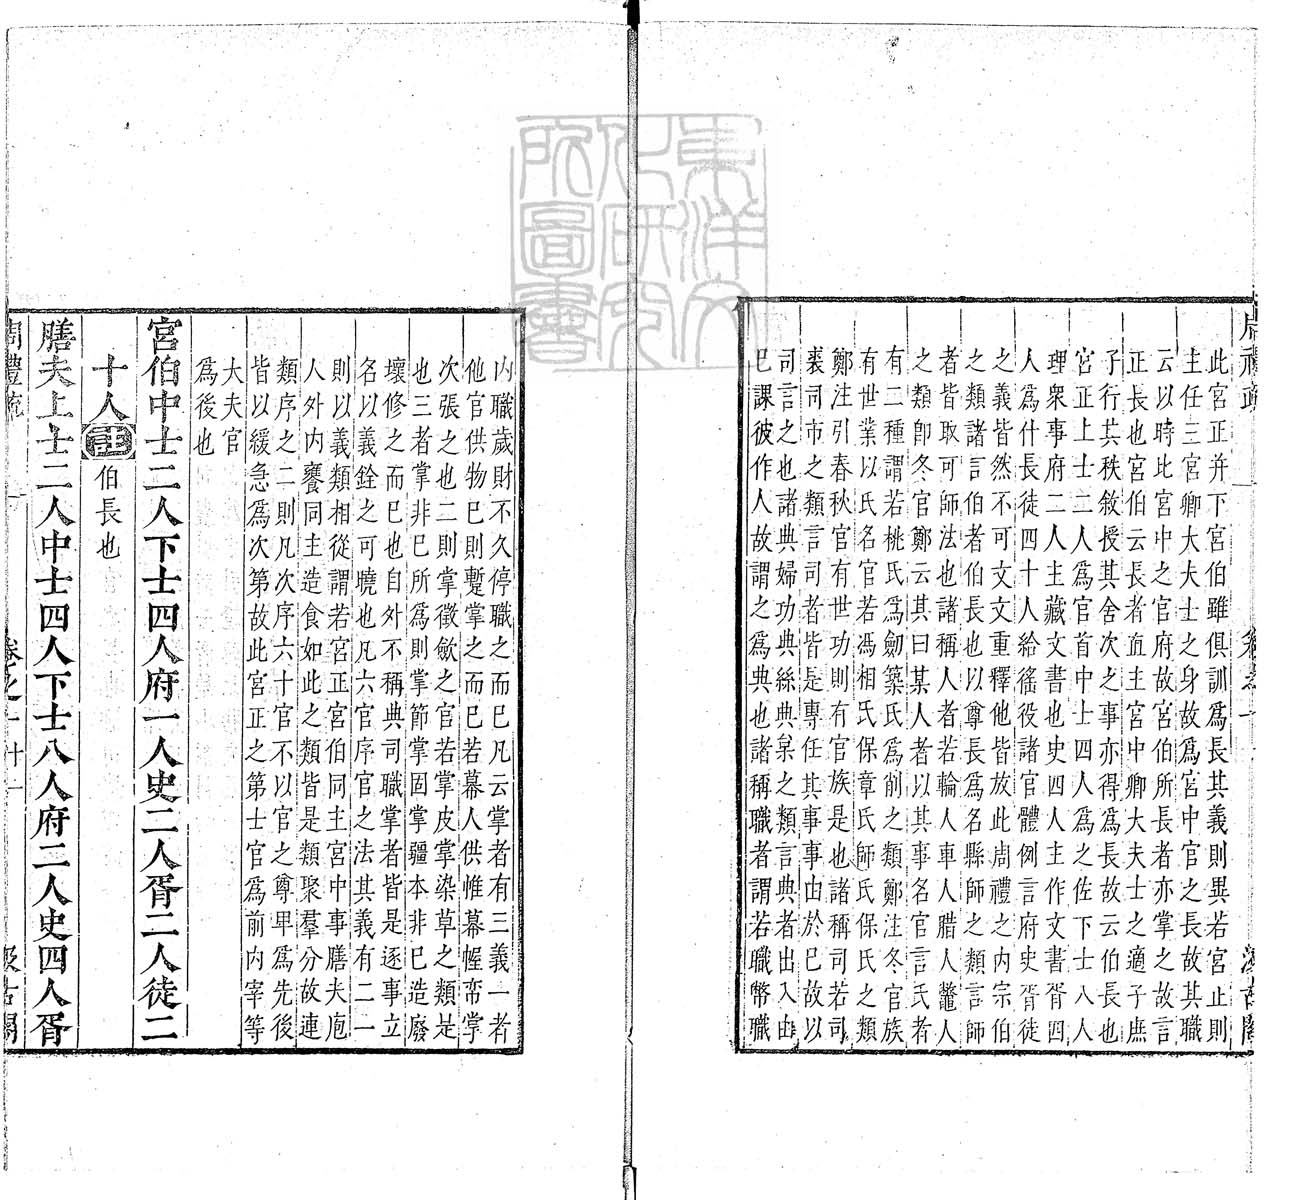 此宮正并下宮伯雖俱訓爲長其義則異若宮正則
主任三宮卿大夫士之身故爲宮中官之長故其職
云以時比宮中之官府故宮伯所長者亦掌之故言
正長也宮伯云長者直主宮中卿大夫士之適子庶
子行其秩敘授其舍次之事亦得爲長故云伯長也
宮正上士二人爲官首中士四人爲之佐下士八人
理衆事府二人主藏文書也史四人主作文書胥四
人爲什長徒四十人給徭役諸官體例言府史胥徒
之義皆然不可文文重釋他皆放此周禮之內宗伯
之類諸言伯者伯長也以尊長爲名縣師之類言師
者皆取可師法也諸稱人者若輪人車人腊人鼈人
之類卽冬官鄭云其曰某人者以其事名官言氏者
有二種謂若桃氏爲劒築氏爲削之類鄭注冬官族
有世業以氏名官若馮相氏保章氏師氏保氏之類
鄭注引春秋官有世功則有官族是也諸稱司若司
裘司市之類言司者皆是專任其事事由於已故以
司言之也諸典婦功典絲典枲之類言典者出入由
已課彼作人故謂之爲典也諸稱職者謂若職幣職
內職歲財不久停職之而已凡云掌者有三義一者
他官供物已則蹔掌之而已若幕人供惟幕幄帟掌
次張之也二則掌徵歛之官若掌皮掌染草之類是
也三者掌非已所爲則掌節掌固掌疆本非已造廢
壞修之而已也自外不稱典司職掌者皆是逐事立
名以義銓之可曉也凡六官序官之法其義有二一
則以義類相從謂若宮正宮伯同主宮中事膳夫庖
人外內饔同主造食如此之類皆是類聚羣分故連
類序之二則凡次序六十官不以官之尊卑爲先後
皆以緩急爲次第故此宮正之第士官爲前內宰等
大夫官
爲後也
宮伯中士二人下士四人府一人史二人胥二人徒二
十人註伯長也
膳夫上士二人中士四人下士八人府二人史四人胥
東洋文化研究所圖書